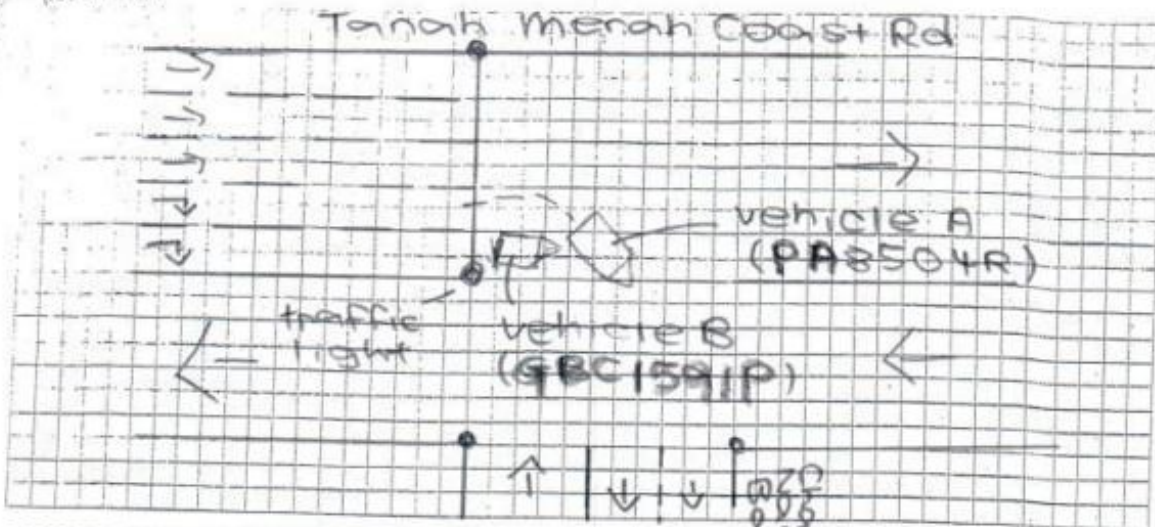 Tanah Merah Coast Rd
vehicle A
(PA8504R)
traffic
light
vehicle B
(GBC1591P)